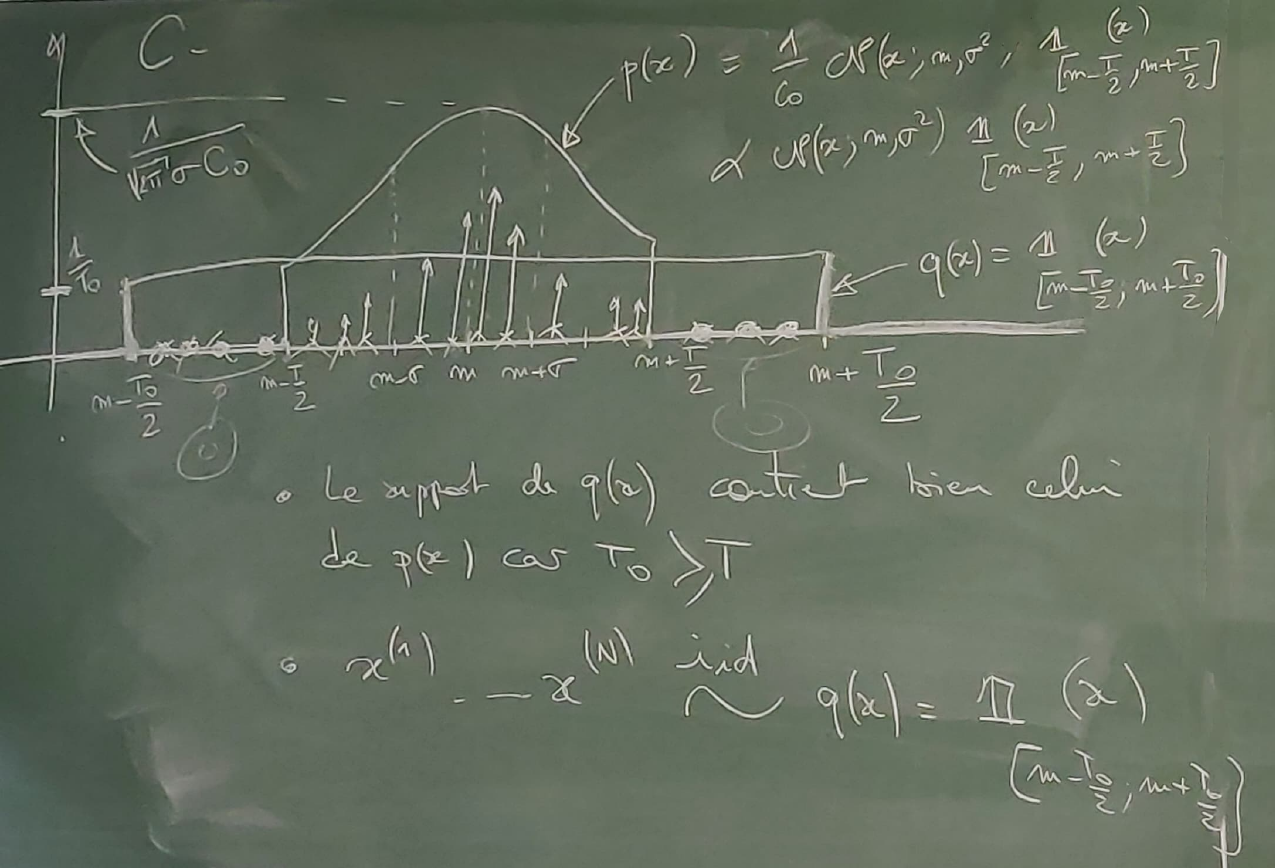 C-
p(x) = 1/C₀ 𝒩(x; m, σ², 𝟙(x)[m-T/2, m+T/2]
∝ 𝒩(x; m, σ²) 𝟙(x)[m-T/2, m+T/2]
1/(√2π σ C₀)
1/T₀
q(x) = 𝟙(x)[m-T₀/2; m+T₀/2]
m-T₀/2 m-T/2 m-σ m m+σ m+T/2 m+T₀/2
0
• Le support de q(x) contient bien celui
de p(x) car T₀ ⩾ T
• x⁽¹⁾ . — x⁽ᴺ⁾ iid ~ q(x) = 𝟙(x)[m-T₀/2; m+T₀/2]